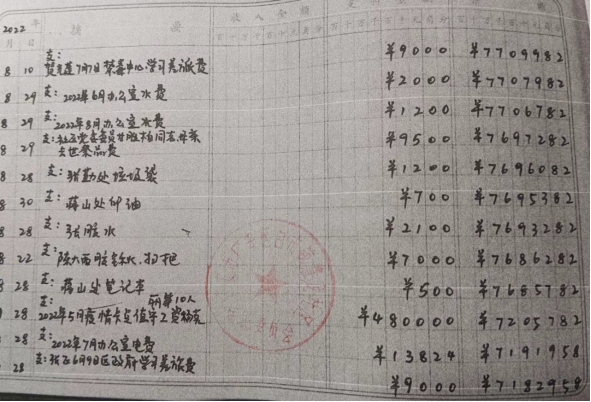 2022 年 摘 要 收入金额
月 日 百十万千百十元角分
支:
8 10 7月7日禁毒中心学习差旅费 ¥9000 ¥7709982
8 29 支:2022年6月办公室水费 ¥2000 ¥7707982
8 29 支:2022年8月办公室水费 ¥1200 ¥7706782
支:社区党委委员
8 29 去世祭品费 ¥9500 ¥7697282
8 28 支:张勤处垃圾袋 ¥1200 ¥7696082
8 30 支:蒋山处印油 ¥700 ¥7695382
8 28 支:张胶水 ¥2100 ¥7693282
8 22 支:陈大西胶 扫把 ¥7000 ¥7686282
8 28 支:蒋山处笔记本 ¥500 ¥7685782
支: 第10人
28 2022年5月疫情卡点值班工资 ¥480000 ¥7205782
28 支:2022年7月办公室电费 ¥13824 ¥7191958
28 支:张飞6月9日区政府学习差旅费 ¥9000 ¥7182958